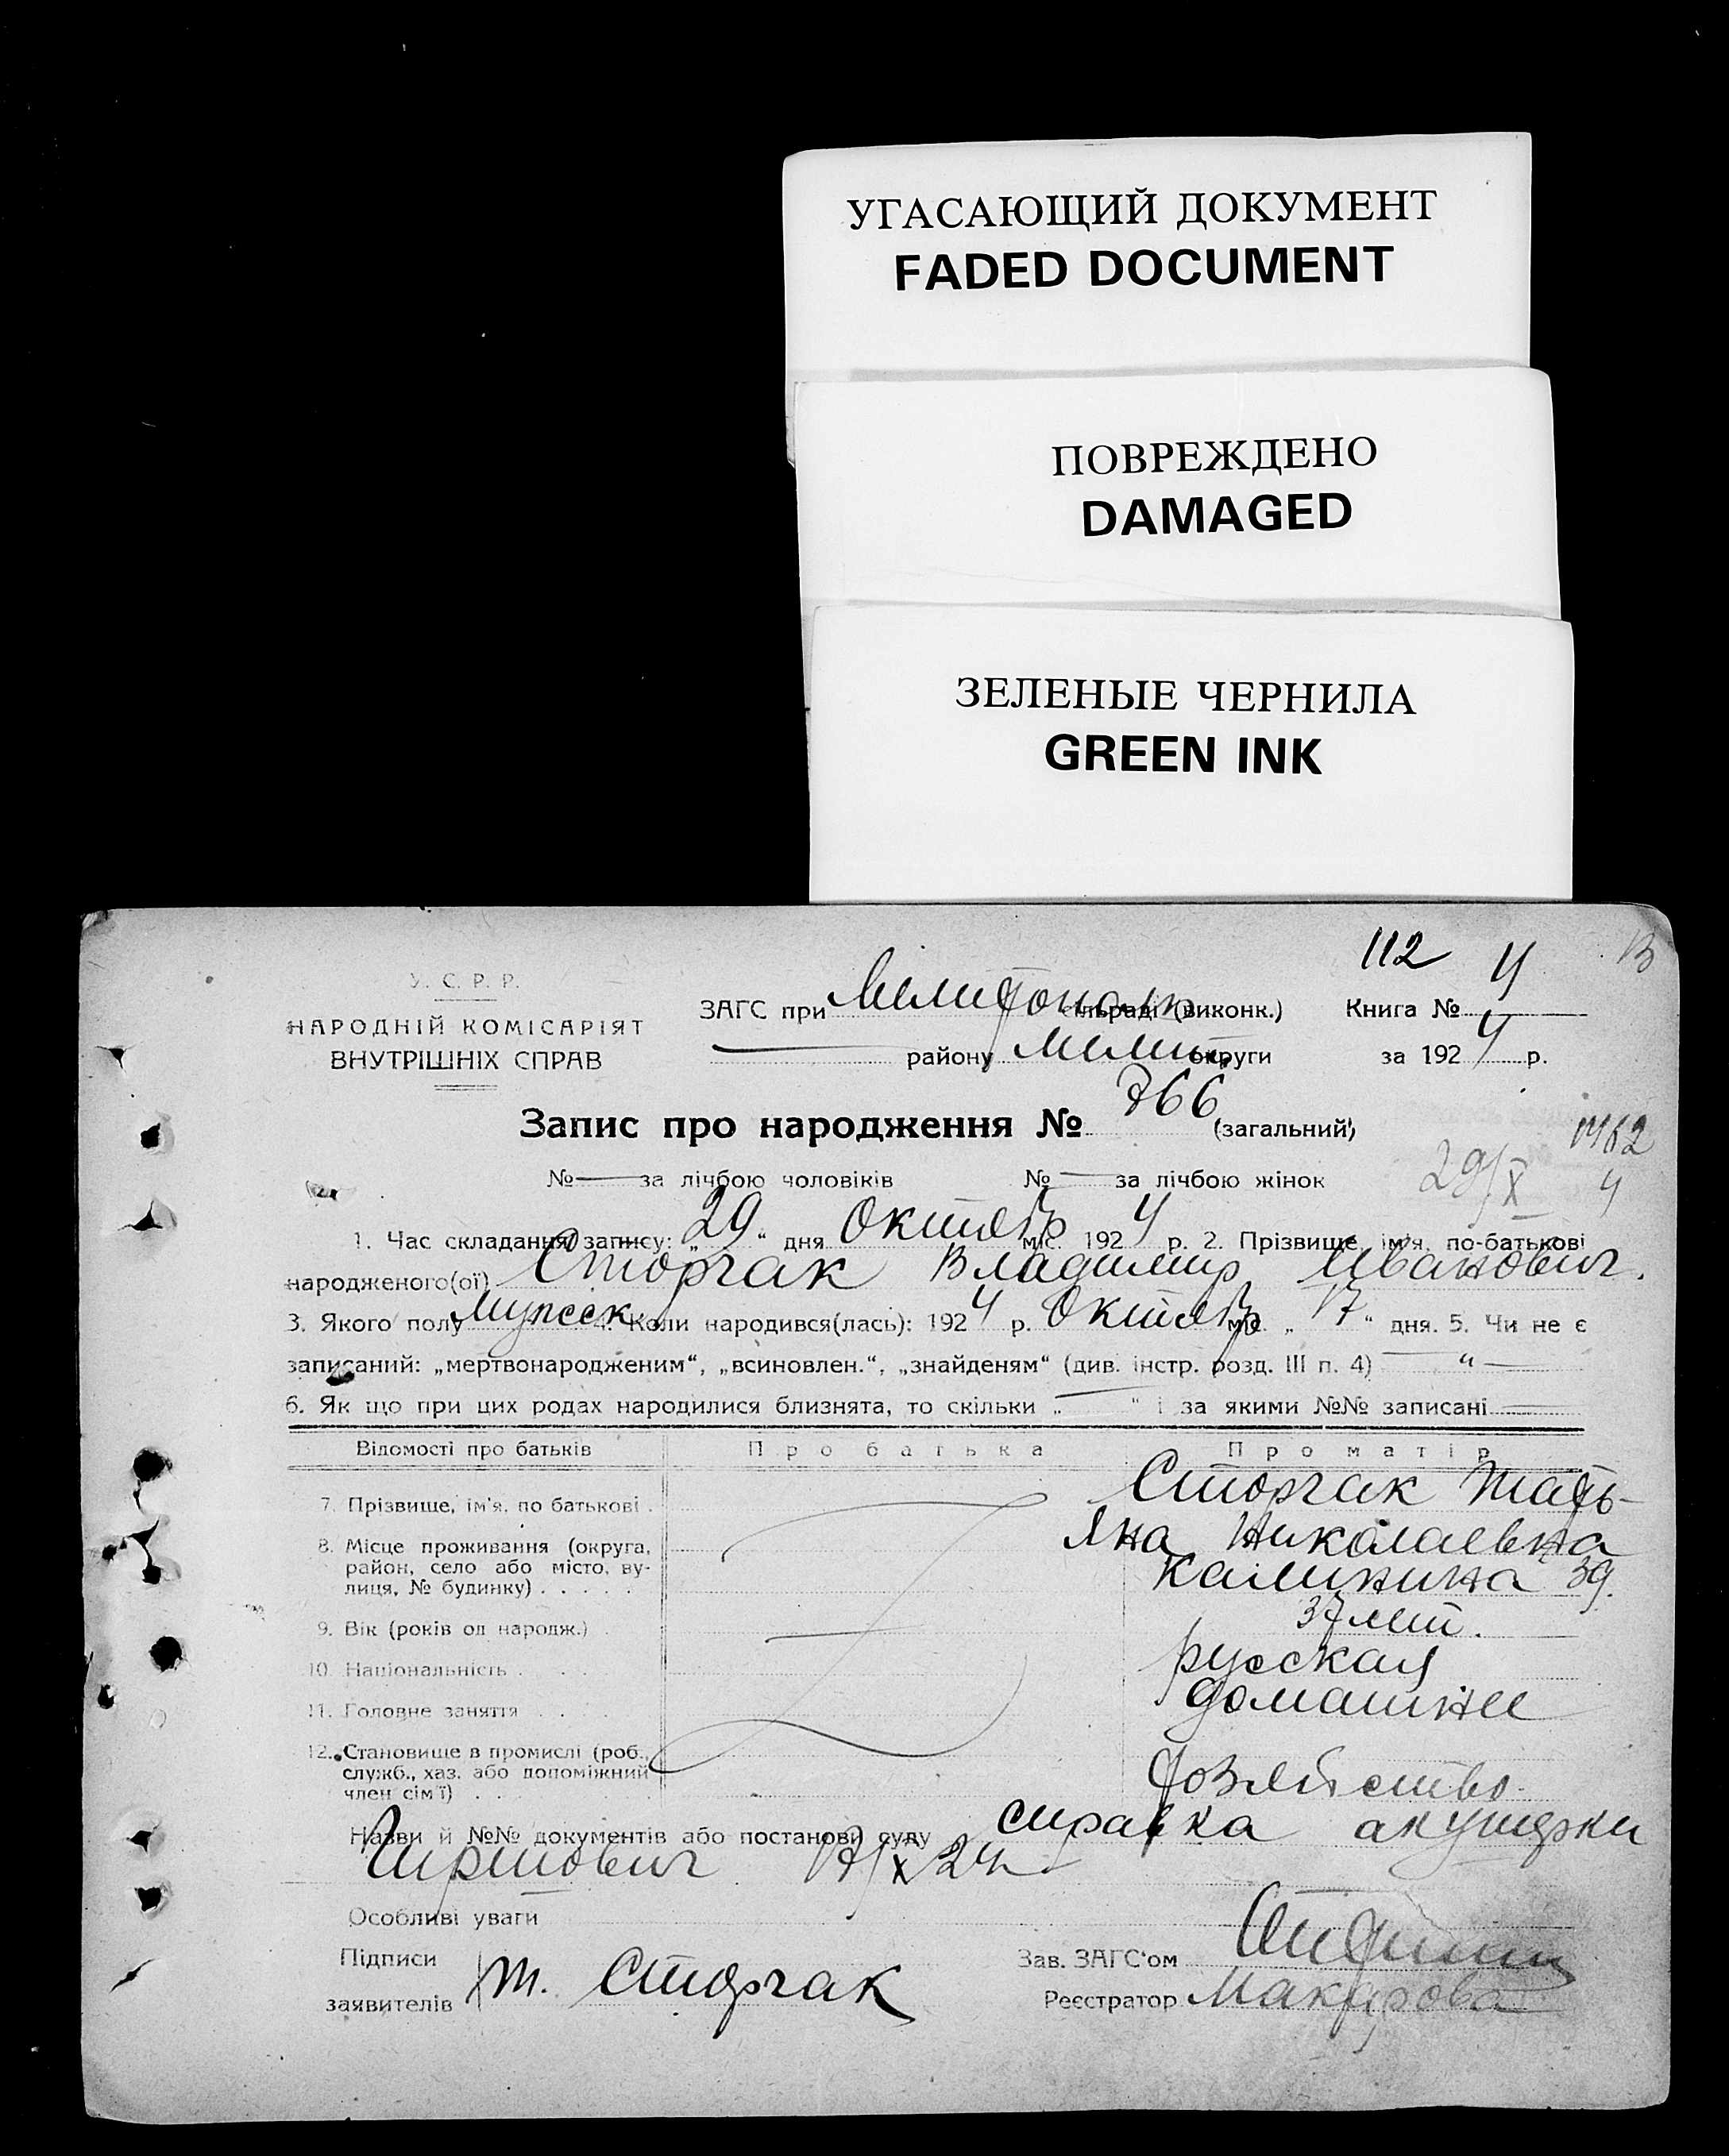 УГАСАЮЩИЙ ДОКУМЕНТ
FADED DOCUMENT
ПОВРЕЖДЕНО
DAMAGED
ЗЕЛЕНЫЕ ЧЕРНИЛА
GREEN INK
112 4 13
У. С. Р. Р.
НАРОДНІЙ КОМІСАРІЯТ
ВНУТРІШНІХ СПРАВ
ЗАГС при Мелитополь сільраді (виконк.) Книга №
району Мелит. округи за 1924 р.
Запис про народження № 766 (загальний)
1462
№ — за лічбою чоловіків № — за лічбою жінок 29/X 4
1. Час складання запису: „29“ дня Октябр міс. 1924 р. 2. Прізвище, ім'я, по-батькові
народженого(ої) Сторчак Владимир Иванович.
3. Якого полу мужск. 4. Коли народився(лась): 1924 р. Октябр міс. „17“ дня. 5. Чи не є
записаний: „мертвонародженим“, „всиновлен.“, „знайденям“ (див. інстр. розд. III п. 4) — “ —
6. Як що при цих родах народилися близнята, то скільки „—“ і за якими №№ записані —
Відомості про батьків Про батька Про матір
7. Прізвище, ім'я, по батькові . Сторчак Тать-
яна Николаевна
8. Місце проживання (округа,
район, село або місто, ву-
лиця, № будинку) . . . . . Калинина 39.
9. Вік (років од народж.) . — 37 лет.
10. Національність . . . . русская
11. Головне заняття . . . домашнее
12. Становище в промислі (роб.,
служб., хаз. або допоміжний
член сім'ї) . .
Назви й №№ документів або постанови суду справка акушерки
17/X 24
Особливі уваги
Підписи
заявителів Т. Сторчак
Зав. ЗАГС'ом
Реєстратор Макарова